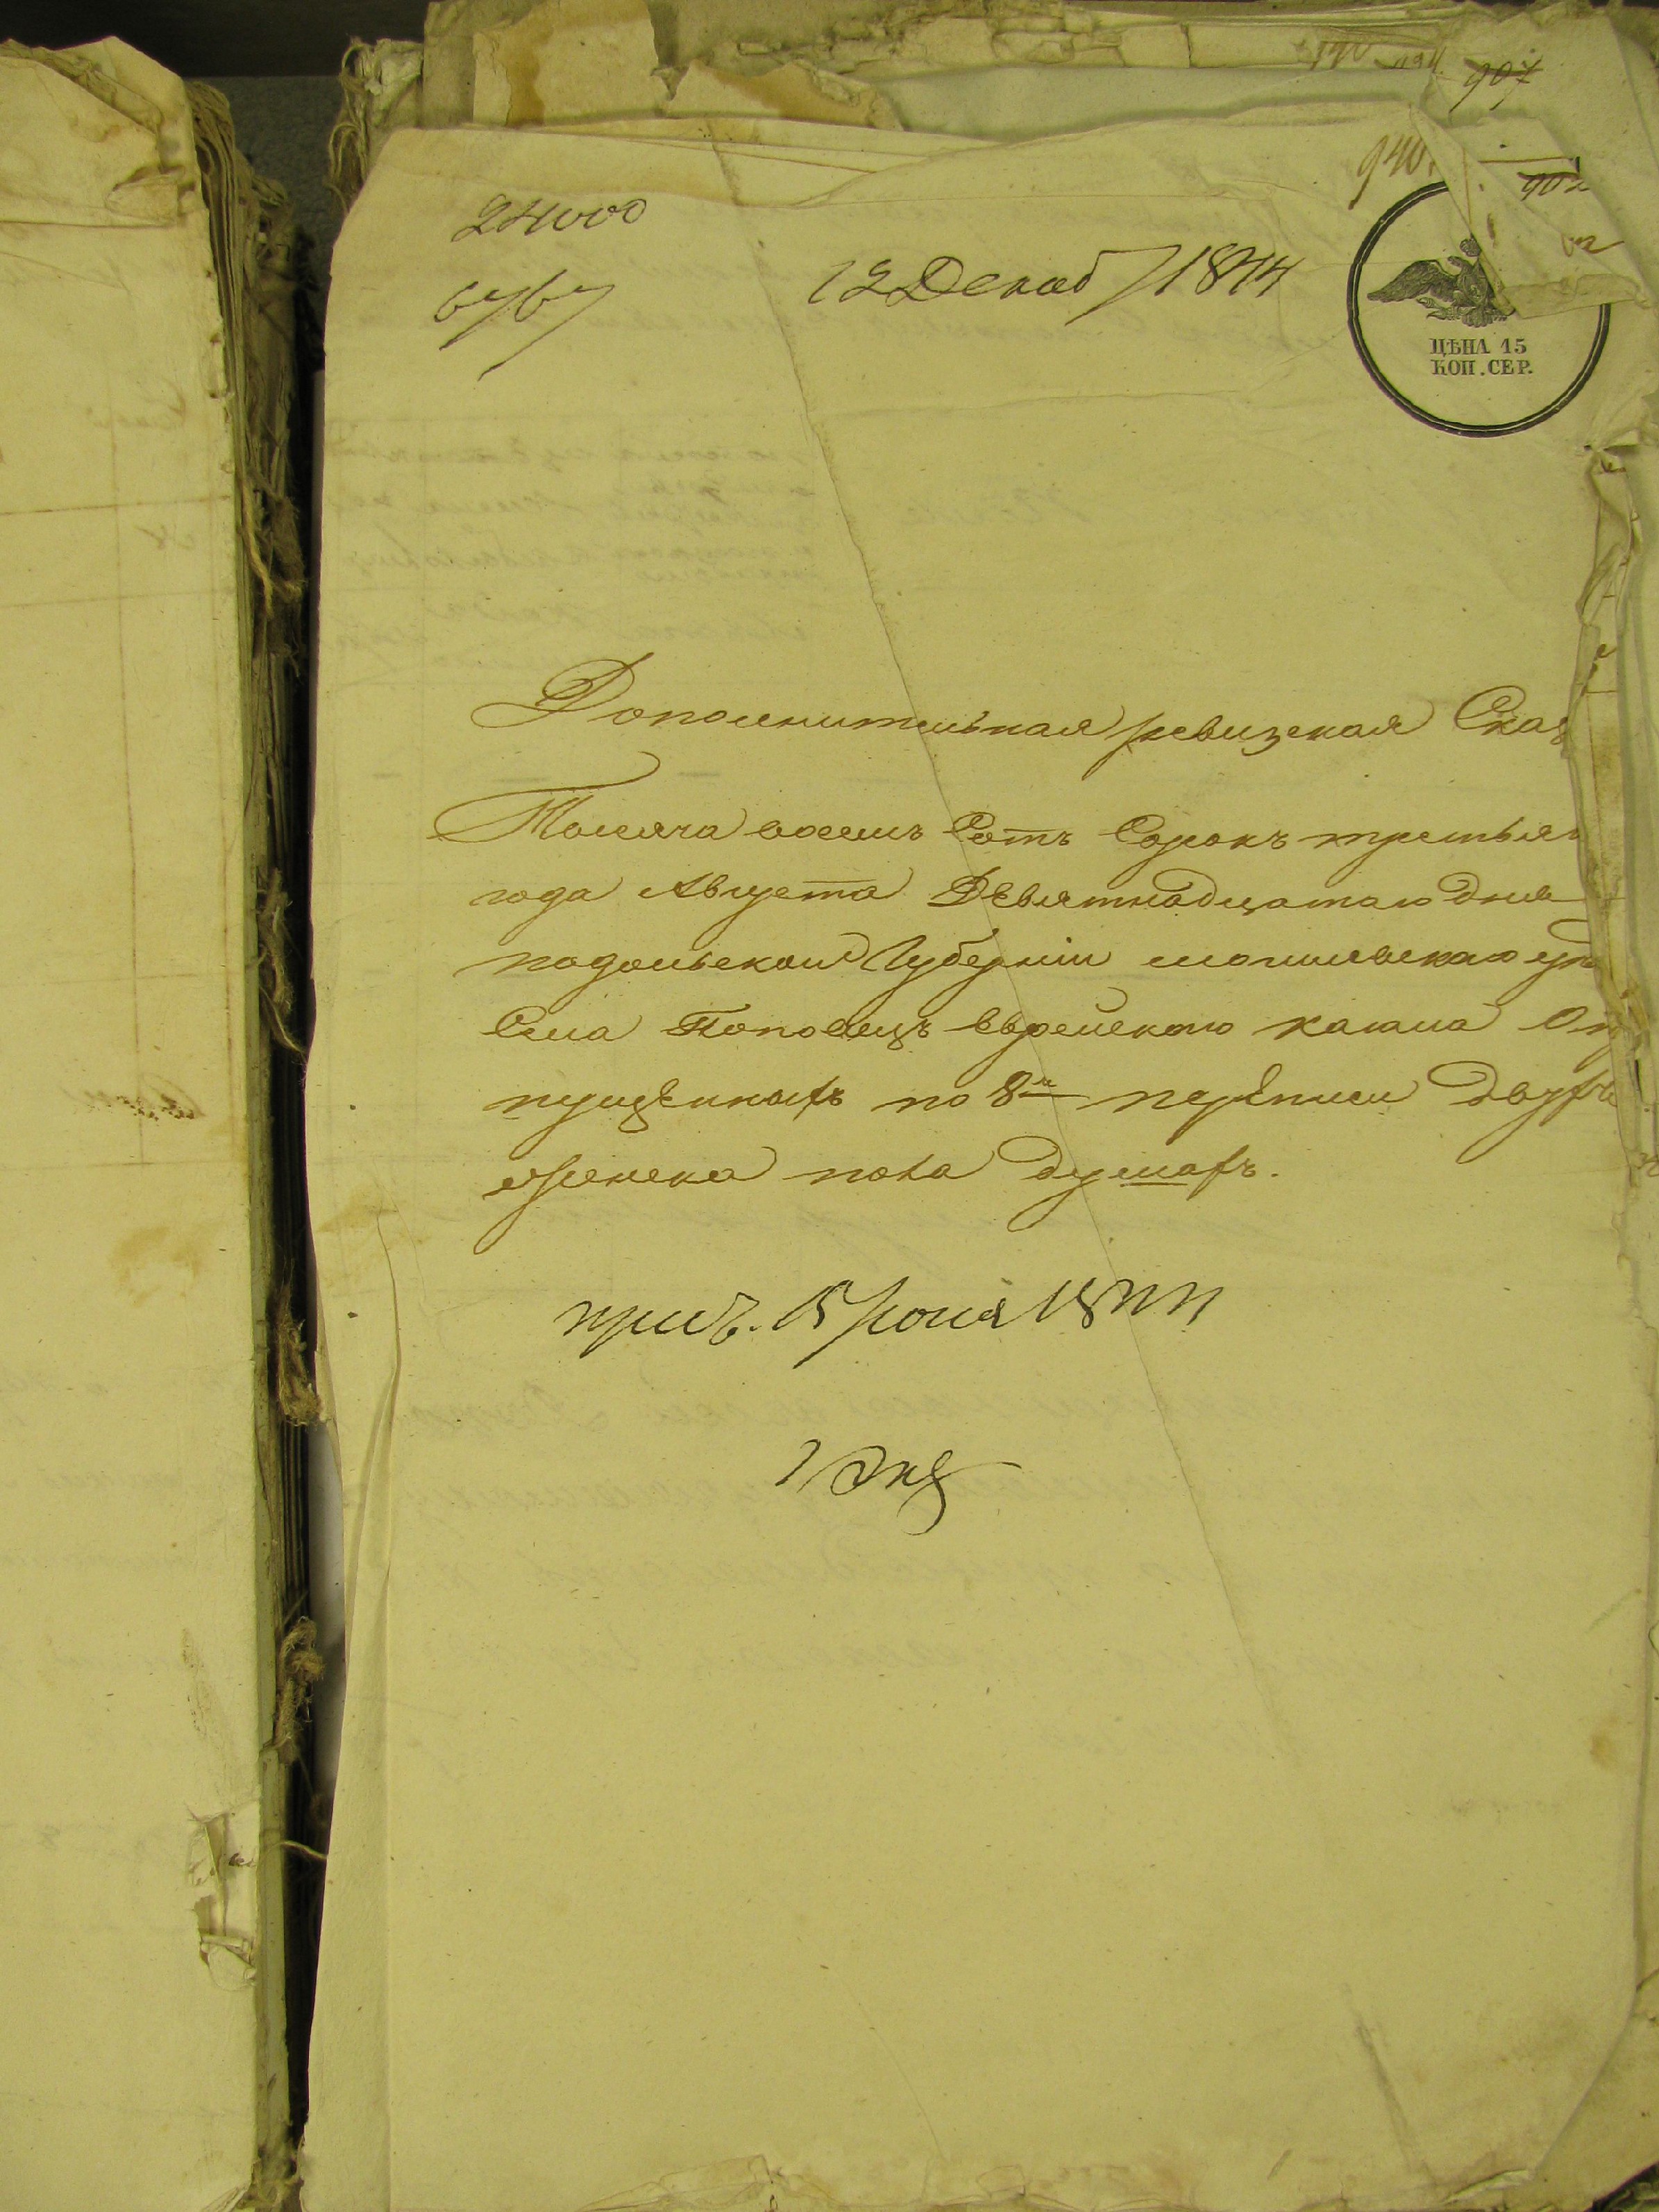 907
940
902
24000
12 Декаб 1844
ЦѢНА 15
КОП. СЕР.
Дополнительная ревизская Сказ
Тысяча восемь Сотъ Сорокъ третьяг
года Августа Девятнадцатаго дня
подольской Губерніи могилевскаго уѣ
Села Поповецъ Еврейскаго кагала О
пущенныхъ по 8й переписи двухъ
женска пола душахъ.
1844